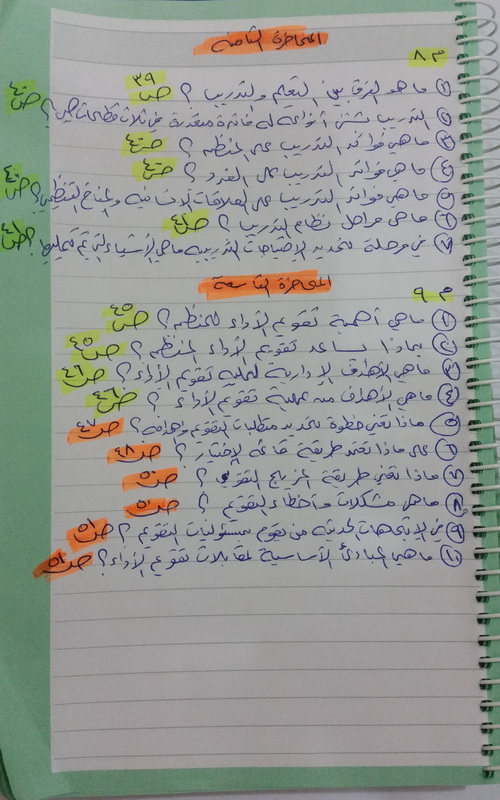 المحاضرة الثامنة
م ٨
① ما هو الفرق بين التعليم والتدريب ؟ ص ٣٩
② التدريب بشتى أنواعه له فائدة متعددة في ثلاث قطاعات هي ؟ ص ٤٠
③ ما هي فوائد التدريب على المنظمه ؟ ص ٤٠
④ ما هي فوائد التدريب على الفرد ؟ ص ٤٠
⑤ ما هي فوائد التدريب على العلاقات الإنسانيه والمناخ التنظيمي ؟ ص ٤٠
⑥ ما هي مراحل نظام التدريب ؟ ص ٤١
⑦ في مرحلة تحديد الإحتياجات التدريبيه ما هي الأشياء التي يتم تحليلها ؟ ص ٤١
المحاضرة التاسعة
م ٩
① ما هي أهمية تقويم الأداء للمنظمه ؟ ص ٤٥
② بماذا يساعد تقويم الأداء المنظمه ؟ ص ٤٥
③ ما هي الأهداف الإدارية لعملية تقويم الأداء ؟ ص ٤٦
④ ما هي الأهداف من عملية تقويم الأداء ؟ ص ٤٦
⑤ ماذا تعني خطوة تحديد متطلبات التقويم وأهدافه ؟ ص ٤٧
⑥ على ماذا تعتمد طريقة قائمة الإختيار ؟ ص ٤٨
⑦ ماذا تعني طريقة المزيج التقويمي ؟ ص ٥٠
⑧ ما هي مشكلات وأخطاء التقويم ؟ ص ٥٠
⑨ في الإتجاهات الحديثه من يقوم بمسئوليات التقويم ؟ ص ٥١
⑩ ما هي المبادئ الأساسية لمقابلات تقويم الأداء ؟ ص ٥١